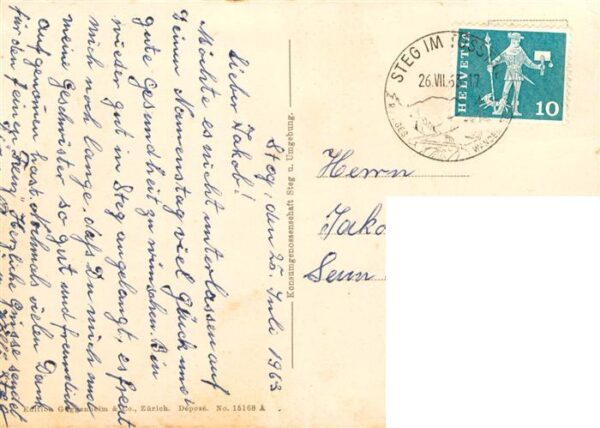 Steg, den 25. Juli 1963
Lieber Jakob!
Möchte es nicht unterlassen auf
Deinen Namenstag viel Glück und
gute Gesundheit zu wünschen. Bin
wieder gut in Steg angelangt, es freut
mich noch lange, dass Du mich und
meine Geschwister so gut und freundlich
aufgenomen hast. Nochmals vielen Dank
für den Herzliche Grüsse sendet
Konsumgenossenschaft Steg u. Umgebung.
Edition Guggenheim & Co., Zürich. Déposé. No. 15168 A
STEG IM TÖSST
26.VII.63-17
HELVETIA
10
Herrn
Jako
Senn